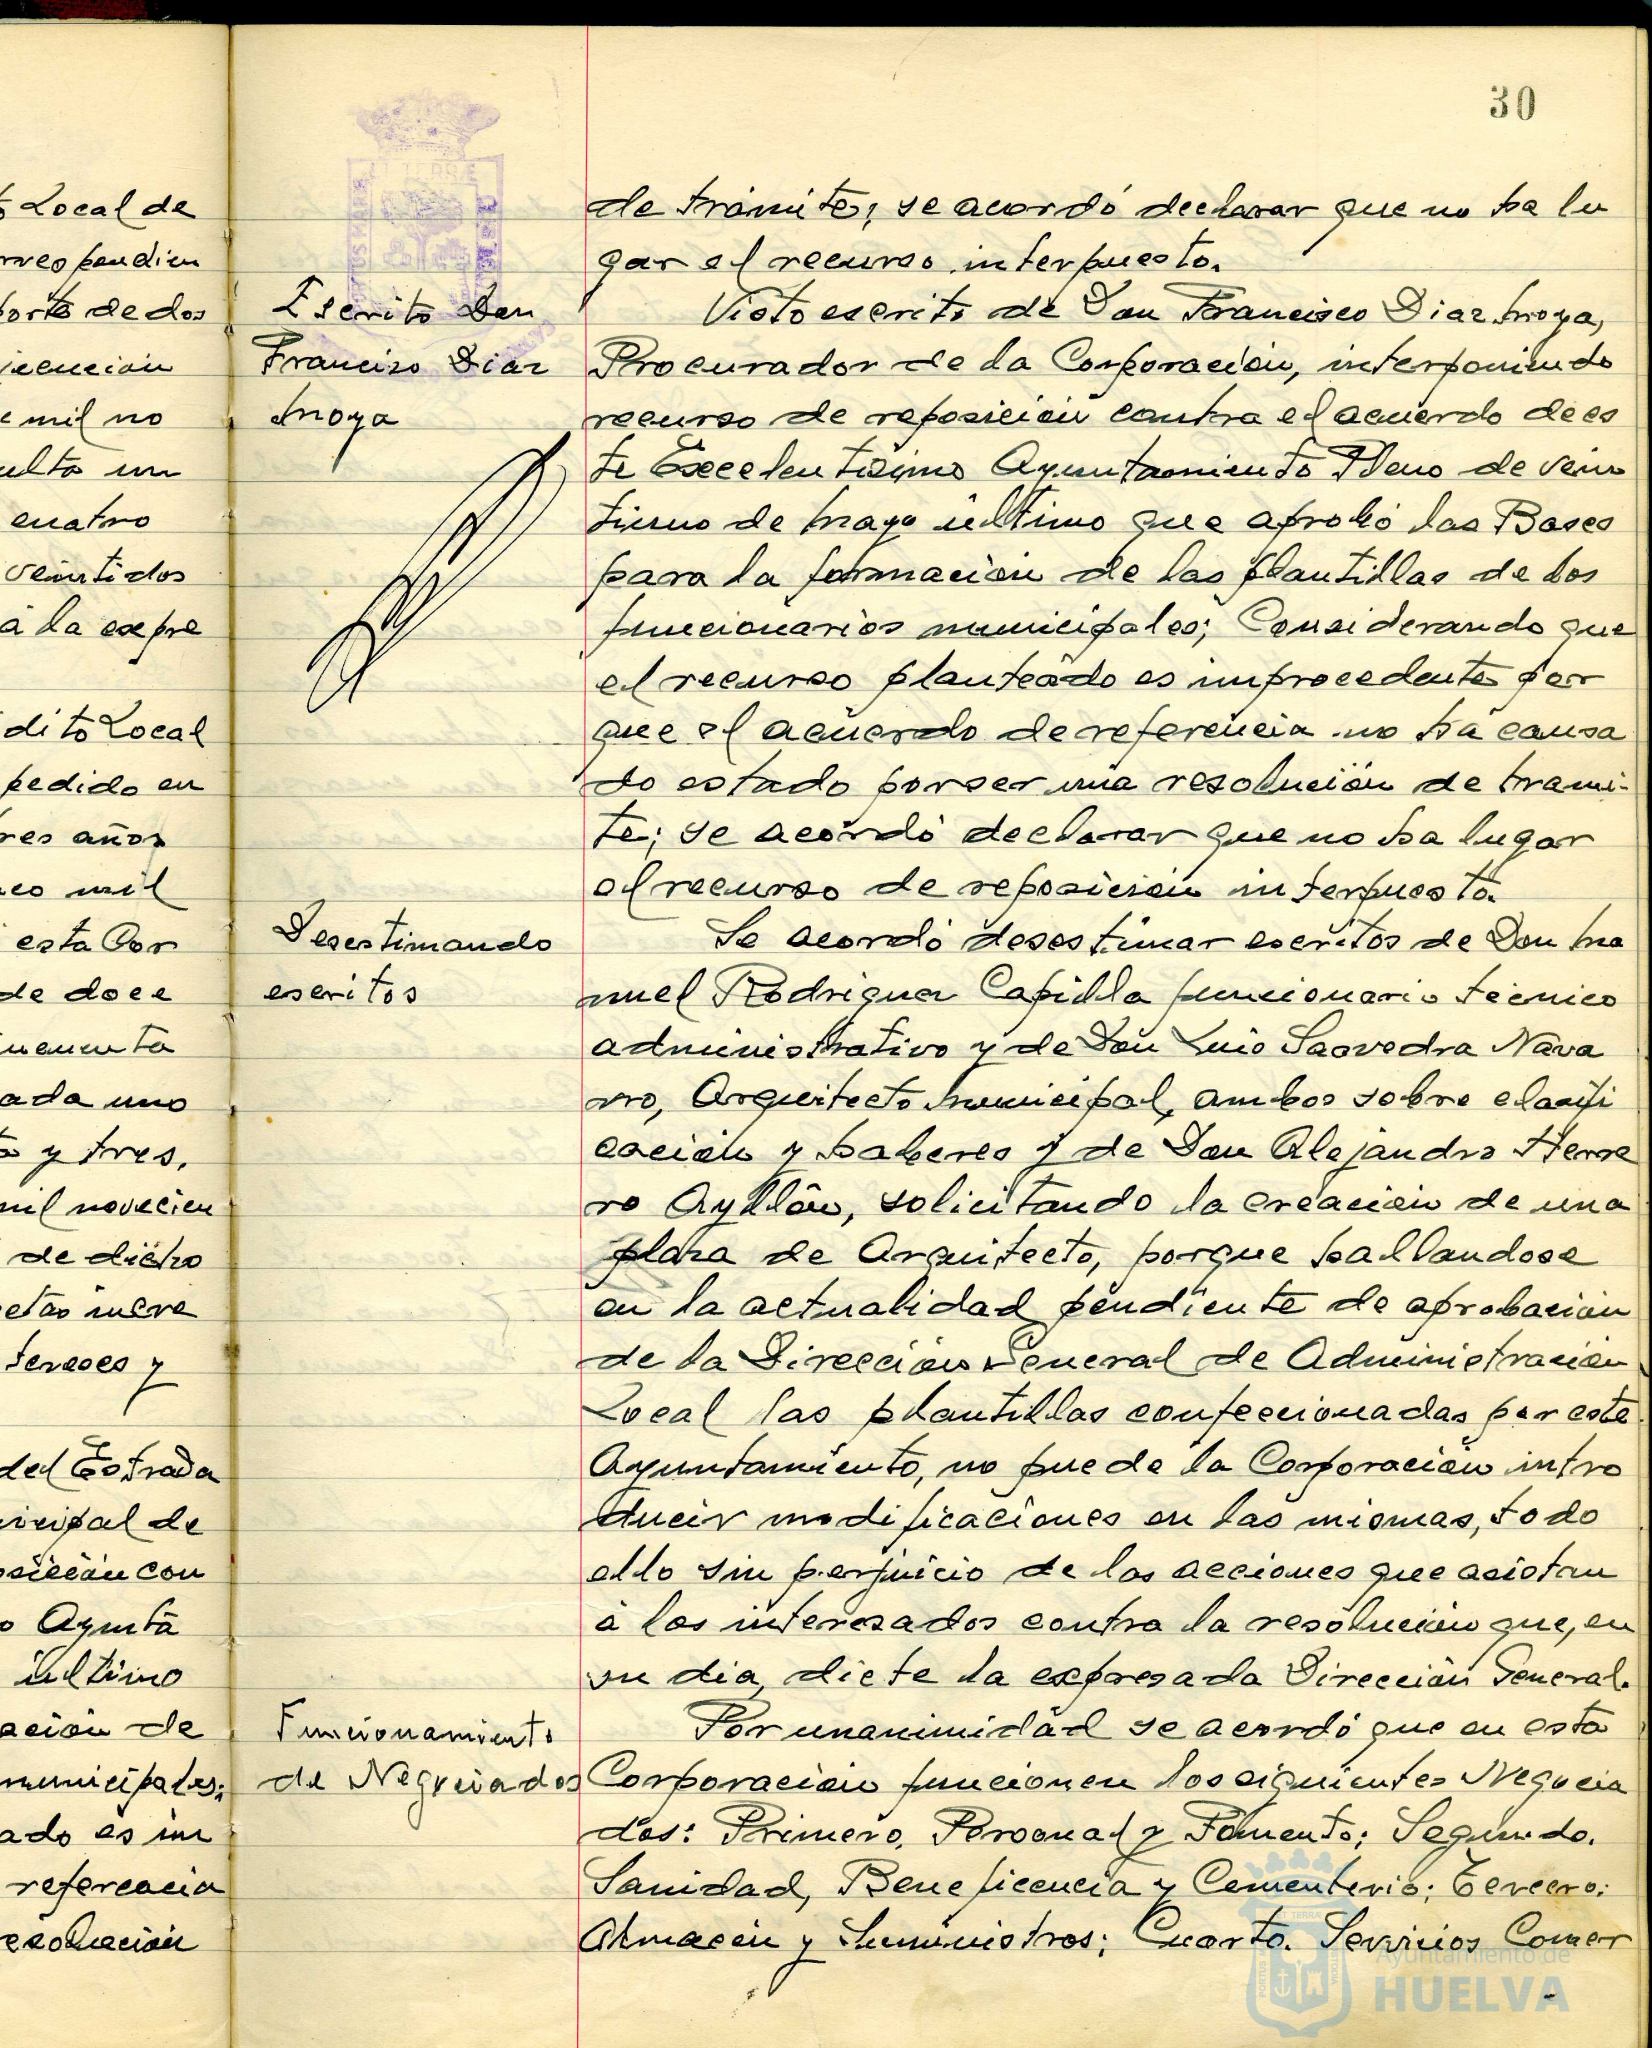 30
to Local de
rrespondien
porte de dos
jecución
e mil no
ulta un
cuatro
veintidos
á la expre
dito Local
pedido en
res años
nco mil
esta Cor
de doce
ncuenta
ada uno
y tres,
mil novecien
de dicho
etas nueve
tereses y
del Estrada
nicipal de
sición con
o Ayunta
último
ación de
municipales;
ado es im
referencia
esolución
Escrito Don
Francisco Diaz
Moya
Desestimando
escritos
Funcionamiento
de Negociados
de trámite; se acordó declarar que no ha lu
gar el recurso interpuesto.
Visto escrito de Don Francisco Diaz Moya,
Procurador de la Corporación, interponiendo
recurso de reposición contra el acuerdo de es
te Excelentísimo Ayuntamiento Pleno de vein
tiuno de Mayo último que aprobó las Bases
para la formación de las plantillas de los
funcionarios municipales; Considerando que
el recurso planteado es improcedente por
que el acuerdo de referencia no ha causa
do estado por ser una resolución de trami-
te; se acordó declarar que no ha lugar
al recurso de reposición interpuesto.
Se acordó desestimar escritos de Don Ma
nuel Rodriguez Capilla funcionario técnico
administrativo y de Don Luis Saavedra Nava
rro, Arquitecto Municipal, ambos sobre clasifi
cación y haberes y de Don Alejandro Herre
ro Ayllón, solicitando la creación de una
plaza de Arquitecto, porque hallandose
en la actualidad pendiente de aprobación
de la Dirección General de Administración
Local las plantillas confeccionadas por este
Ayuntamiento, no puede la Corporación intro
ducir modificaciones en las mismas, todo
ello sin perjuicio de las acciones que asistan
á los interesados contra la resolución que, en
su dia, dicte la expresada Dirección General.
Por unanimidad se acordó que en esta
Corporación funcionen los siguientes Negocia
dos: Primero, Personal y Fomento; Segundo.
Sanidad, Beneficencia y Cementerio; Tercero:
Almacén y Suministros; Cuarto. Servicios Comer
Ayuntamiento de
HUELVA